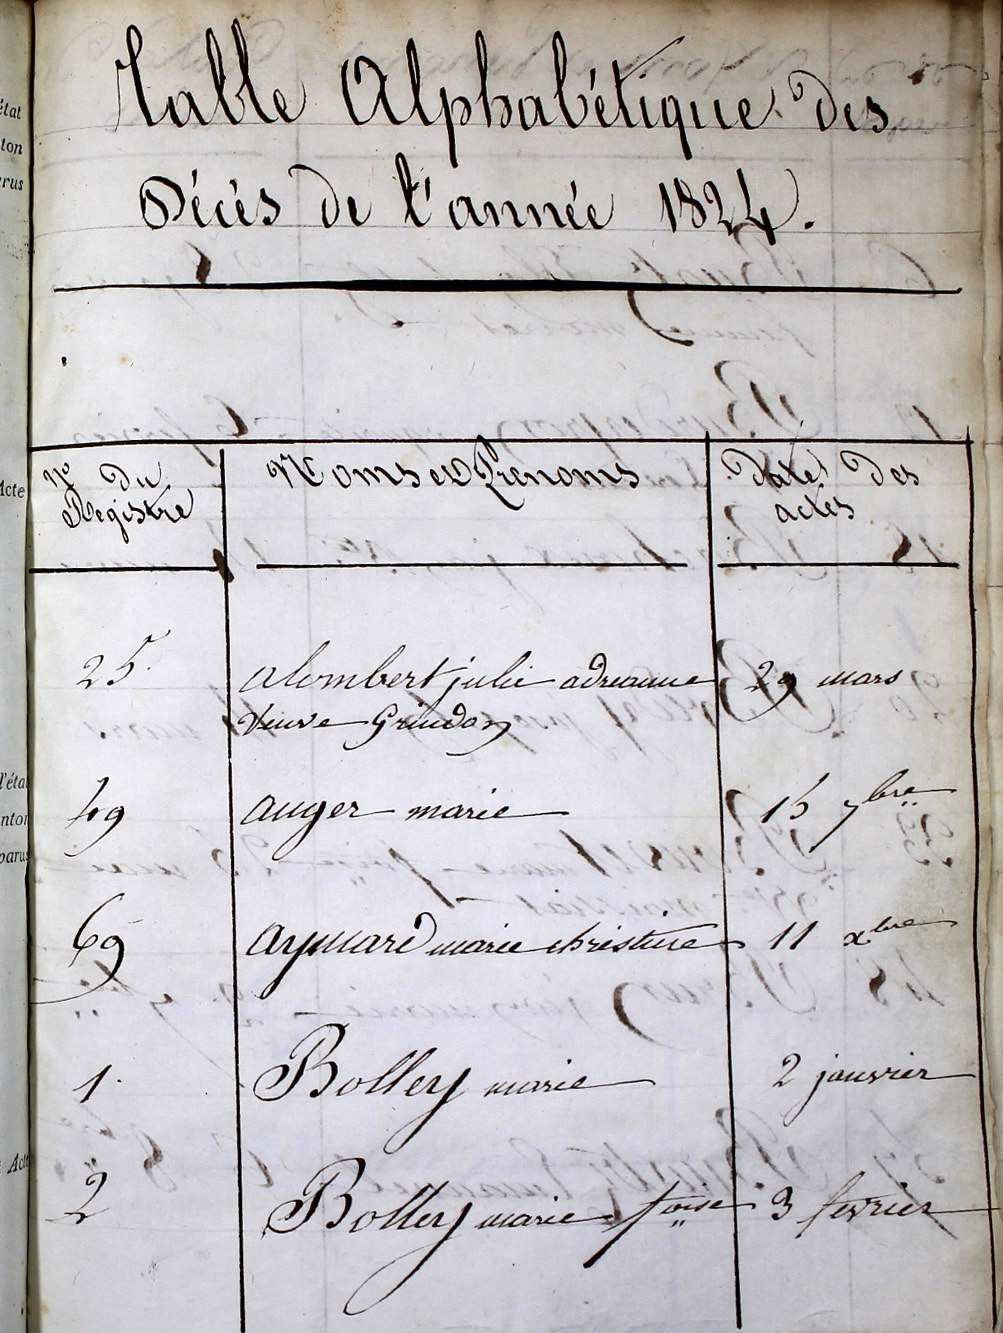 Table Alphabétique des
Décès de l'année 1824.
N° du Registre
Noms et Prénoms
dates des actes
25 alombert julie adreanne 29 mars
veuve Grindon
49 auger marie 15 7bre
69 aymard marie christine 11 xbre
1 Bolley marie 2 janvier
2 Bolley marie foise 3 fevrier
état
ton
rus
Acte
l'éta
nton
parus
Acte